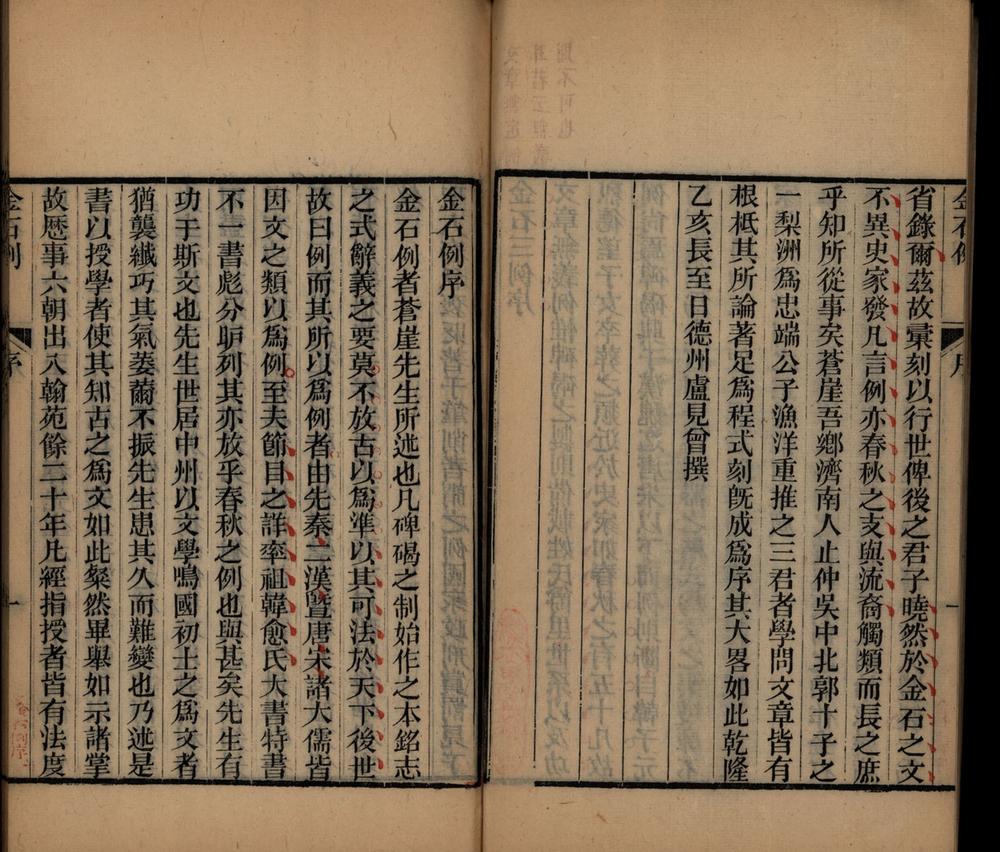 省錄爾茲故彚刻以行世俾後之君子曉然於金石之文
不異史家發凡言例亦春秋之支與流裔觸類而長之庶
乎知所從事矣蒼崖吾鄉濟南人止仲吳中北郭十子之
一梨洲爲忠端公子漁洋重推之三君者學問文章皆有
根柢其所論著足爲程式刻旣成爲序其大畧如此乾隆
乙亥長至日德州盧見曾撰
金石例序
金石例者蒼崖先生所述也凡碑碣之制始作之本銘志
之式辭義之要莫不放古以爲準以其可法於天下後世
故曰例而其所以爲例者由先秦二漢曁唐宋諸大儒皆
因文之類以爲例至夫節目之詳率祖韓愈氏大書特書
不一書彪分臚列其亦放乎春秋之例也與甚矣先生有
功于斯文也先生世居中州以文學鳴國初士之爲文者
猶襲纖巧其氣萎薾不振先生患其久而難變也乃述是
書以授學者使其知古之爲文如此粲然畢舉如示諸掌
故歷事六朝出入翰苑餘二十年凡經指授者皆有法度
金石例
序
一